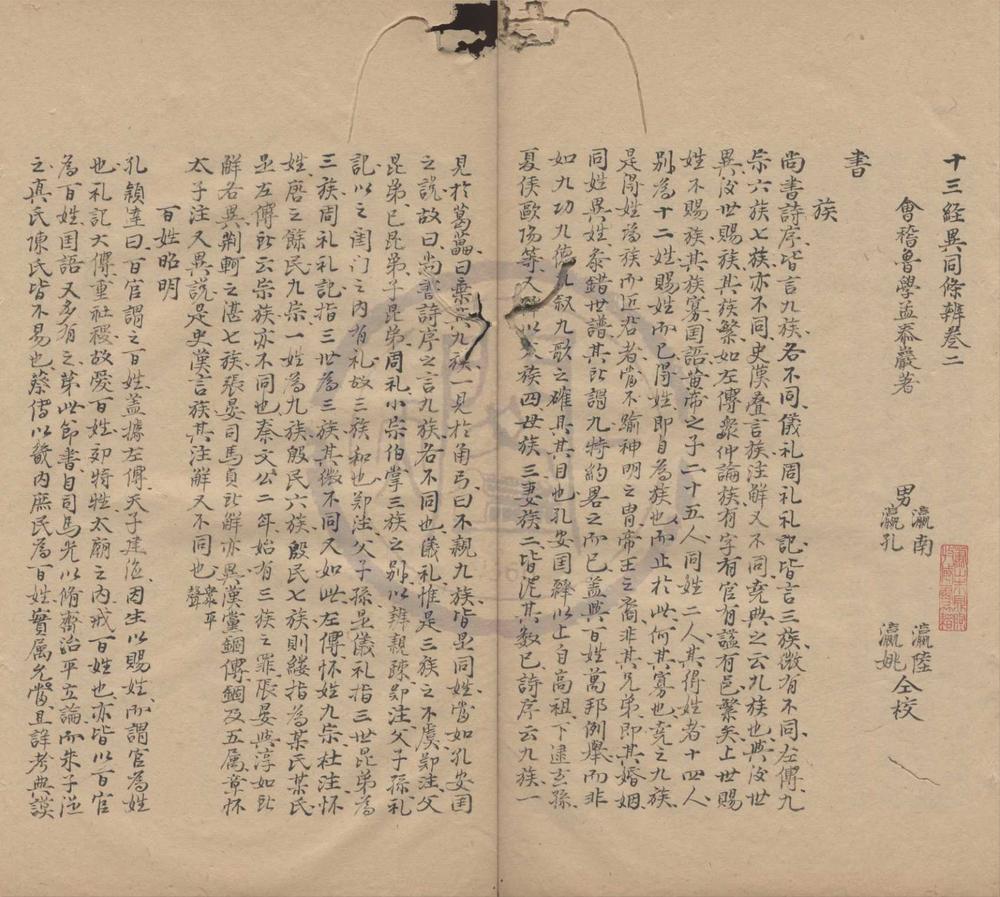 十三経異同條辨卷二
會稽魯學孟泰巖著
男瀛南 瀛陸
瀛孔 瀛姚 仝校
書
族
尚書詩序皆言九族各不同儀礼周礼礼記皆言三族微有不同左傳九
宗六族七族亦不同史漢叠言族注解又不同堯典之云九族也與後世
異後世賜族其族繁如左傳衆仲論族有字有官有諡有邑繁矣上世賜
姓不賜族其族寡国語黃帝之子二十五人同姓二人其得姓者十四人
别為十二姓賜姓而已得姓即自為族也而止於此何其寡也堯之九族
是得姓為族而近君者當不踰神明之胄帝王之裔非其兄弟即其婚姻
同姓異姓条錯世譜其所謂九特約畧之而已盖與百姓萬邦例舉而非
如九功九德九叙九歌之確具其目也孔安国釋以上自高祖下逮玄孫
夏侯歐陽等又以父族四母族三妻族二皆泥其数已詩序云九族一
見於葛藟曰棄其九族一見於角弓曰不親九族皆是同姓當如孔安国
之説故曰尚書詩序之言九族各不同也儀礼惟是三族之不虞鄭注父
昆弟已昆弟子昆弟周礼小宗伯掌三族之别以辨親疎鄭注父子孫礼
記以之闺门之内有礼故三族和也鄭注父子孫是儀礼指三世昆弟為
三族周礼礼記指三世為三族其微不同又如此左傳怀姓九宗杜注怀
姓唐之餘民九宗一姓為九族殷民六族殷民七族則縷指為某民某民
是左傳所云宗族亦不同也秦文公二年始有三族之罪張晏與淳如所
解各異荆軻之湛七族張晏司馬貞所解亦異漢黨錮傳錮及五属章怀
太子注又異説是史漢言族其注解又不同也衆平聲
百姓昭明
孔穎達曰百官謂之百姓盖據左傳天子建德因生以賜姓所謂官為姓
也礼記大傳重社稷故愛百姓郊特牲太廟之内戒百姓也亦皆以百官
為百姓国語又多有之第此節書自司馬光以脩齊治平立論而朱子從
之真氏陳氏皆不易也蔡傳以畿内庶民為百姓實属允當且詳考典謨